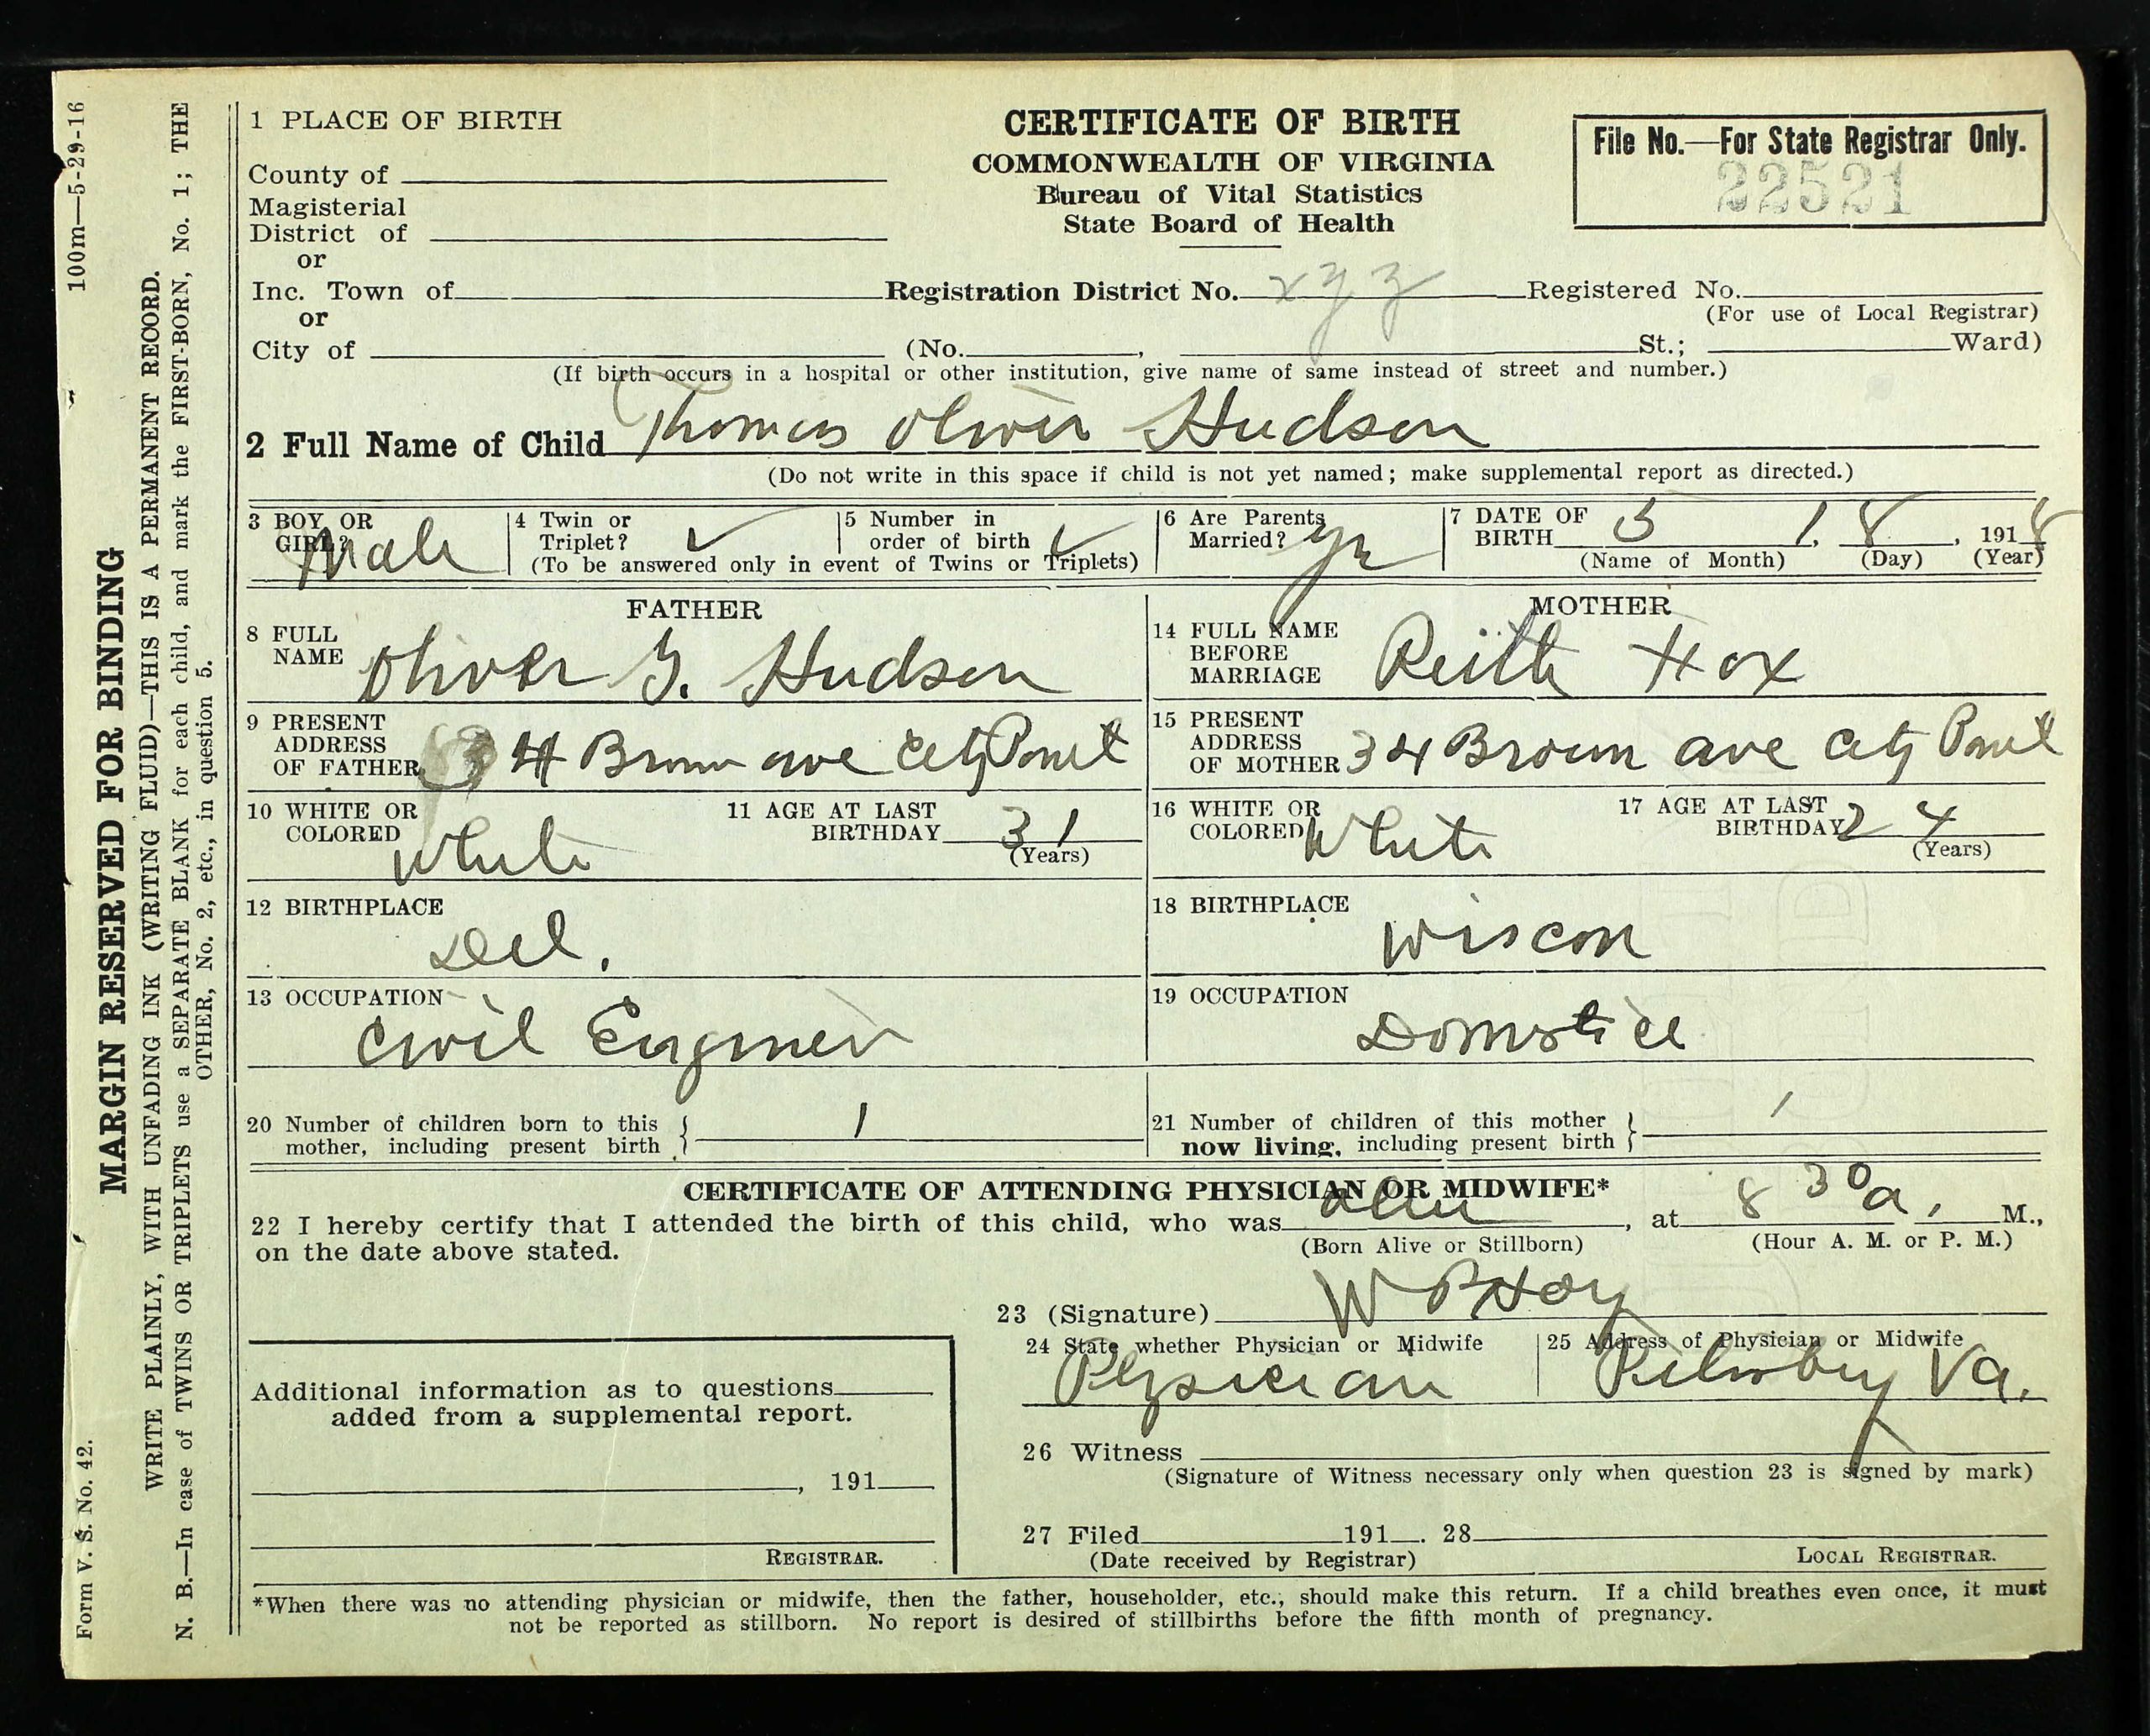 1 PLACE OF BIRTH
County of
Magisterial
District of
or
Inc. Town of
or
City of
CERTIFICATE OF BIRTH
COMMONWEALTH OF VIRGINIA
Bureau of Vital Statistics
State Board of Health
File No.—For State Registrar Only.
22521
Registration District No. xyz Registered No.
(For use of Local Registrar)
(No. , St.; Ward)
(If birth occurs in a hospital or other institution, give name of same instead of street and number.)
2 Full Name of Child Thomas Oliver Hudson
(Do not write in this space if child is not yet named; make supplemental report as directed.)
3 BOY OR GIRL? Male
4 Twin or Triplet? ✓
5 Number in order of birth ✓
(To be answered only in event of Twins or Triplets)
6 Are Parents Married?
7 DATE OF BIRTH 5 1, 8, 1918
(Name of Month) (Day) (Year)
FATHER
8 FULL NAME Oliver G. Hudson
9 PRESENT ADDRESS OF FATHER 34 Brown ave City Point
10 WHITE OR COLORED White
11 AGE AT LAST BIRTHDAY 31
(Years)
12 BIRTHPLACE Del.
13 OCCUPATION Civil Engineer
MOTHER
14 FULL NAME BEFORE MARRIAGE
15 PRESENT ADDRESS OF MOTHER 34 Brown ave City Point
16 WHITE OR COLORED White
17 AGE AT LAST BIRTHDAY 24
(Years)
18 BIRTHPLACE Wiscon
19 OCCUPATION
20 Number of children born to this mother, including present birth } 1
21 Number of children of this mother now living, including present birth } 1
CERTIFICATE OF ATTENDING PHYSICIAN OR MIDWIFE*
22 I hereby certify that I attended the birth of this child, who was , at 8 30 a. M.,
on the date above stated. (Born Alive or Stillborn) (Hour A. M. or P. M.)
23 (Signature) W P Hoy
24 State whether Physician or Midwife
Physician
25 Address of Physician or Midwife
Va.
26 Witness
(Signature of Witness necessary only when question 23 is signed by mark)
27 Filed 191 . 28
(Date received by Registrar) LOCAL REGISTRAR.
Additional information as to questions
added from a supplemental report.
, 191
REGISTRAR.
*When there was no attending physician or midwife, then the father, householder, etc., should make this return. If a child breathes even once, it must
not be reported as stillborn. No report is desired of stillbirths before the fifth month of pregnancy.
Form V. S. No. 42. 100m—5-29-16
MARGIN RESERVED FOR BINDING
WRITE PLAINLY, WITH UNFADING INK (WRITING FLUID)—THIS IS A PERMANENT RECORD.
N. B.—In case of TWINS OR TRIPLETS use a SEPARATE BLANK for each child, and mark the FIRST-BORN, No. 1; THE
OTHER, No. 2, etc., in question 5.